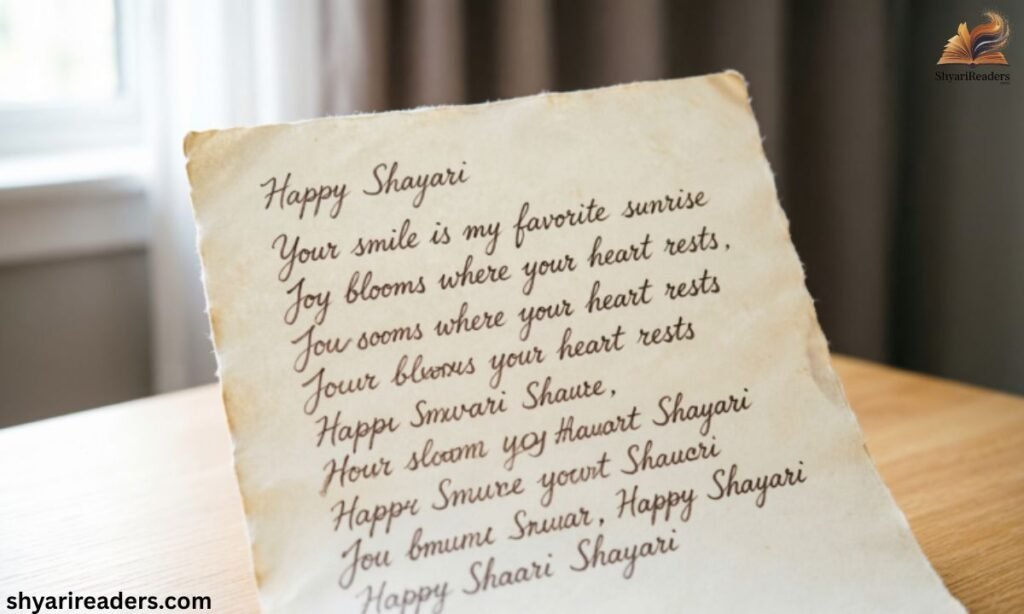 ShyariReaders
Happy Shayari
Your smile is my favorite sunrise
Joy blooms where your heart rests,
Jou sooms where your heart rests
Jouur your heart rests
Happi Smwari Shaure,
Hour sloom yog Hauart Shayari
Happr Smurce yourt Shaucri
Jou bmumt Snuuar, Happy Shayari
Happy Shaari Shayari
shyarireaders.com